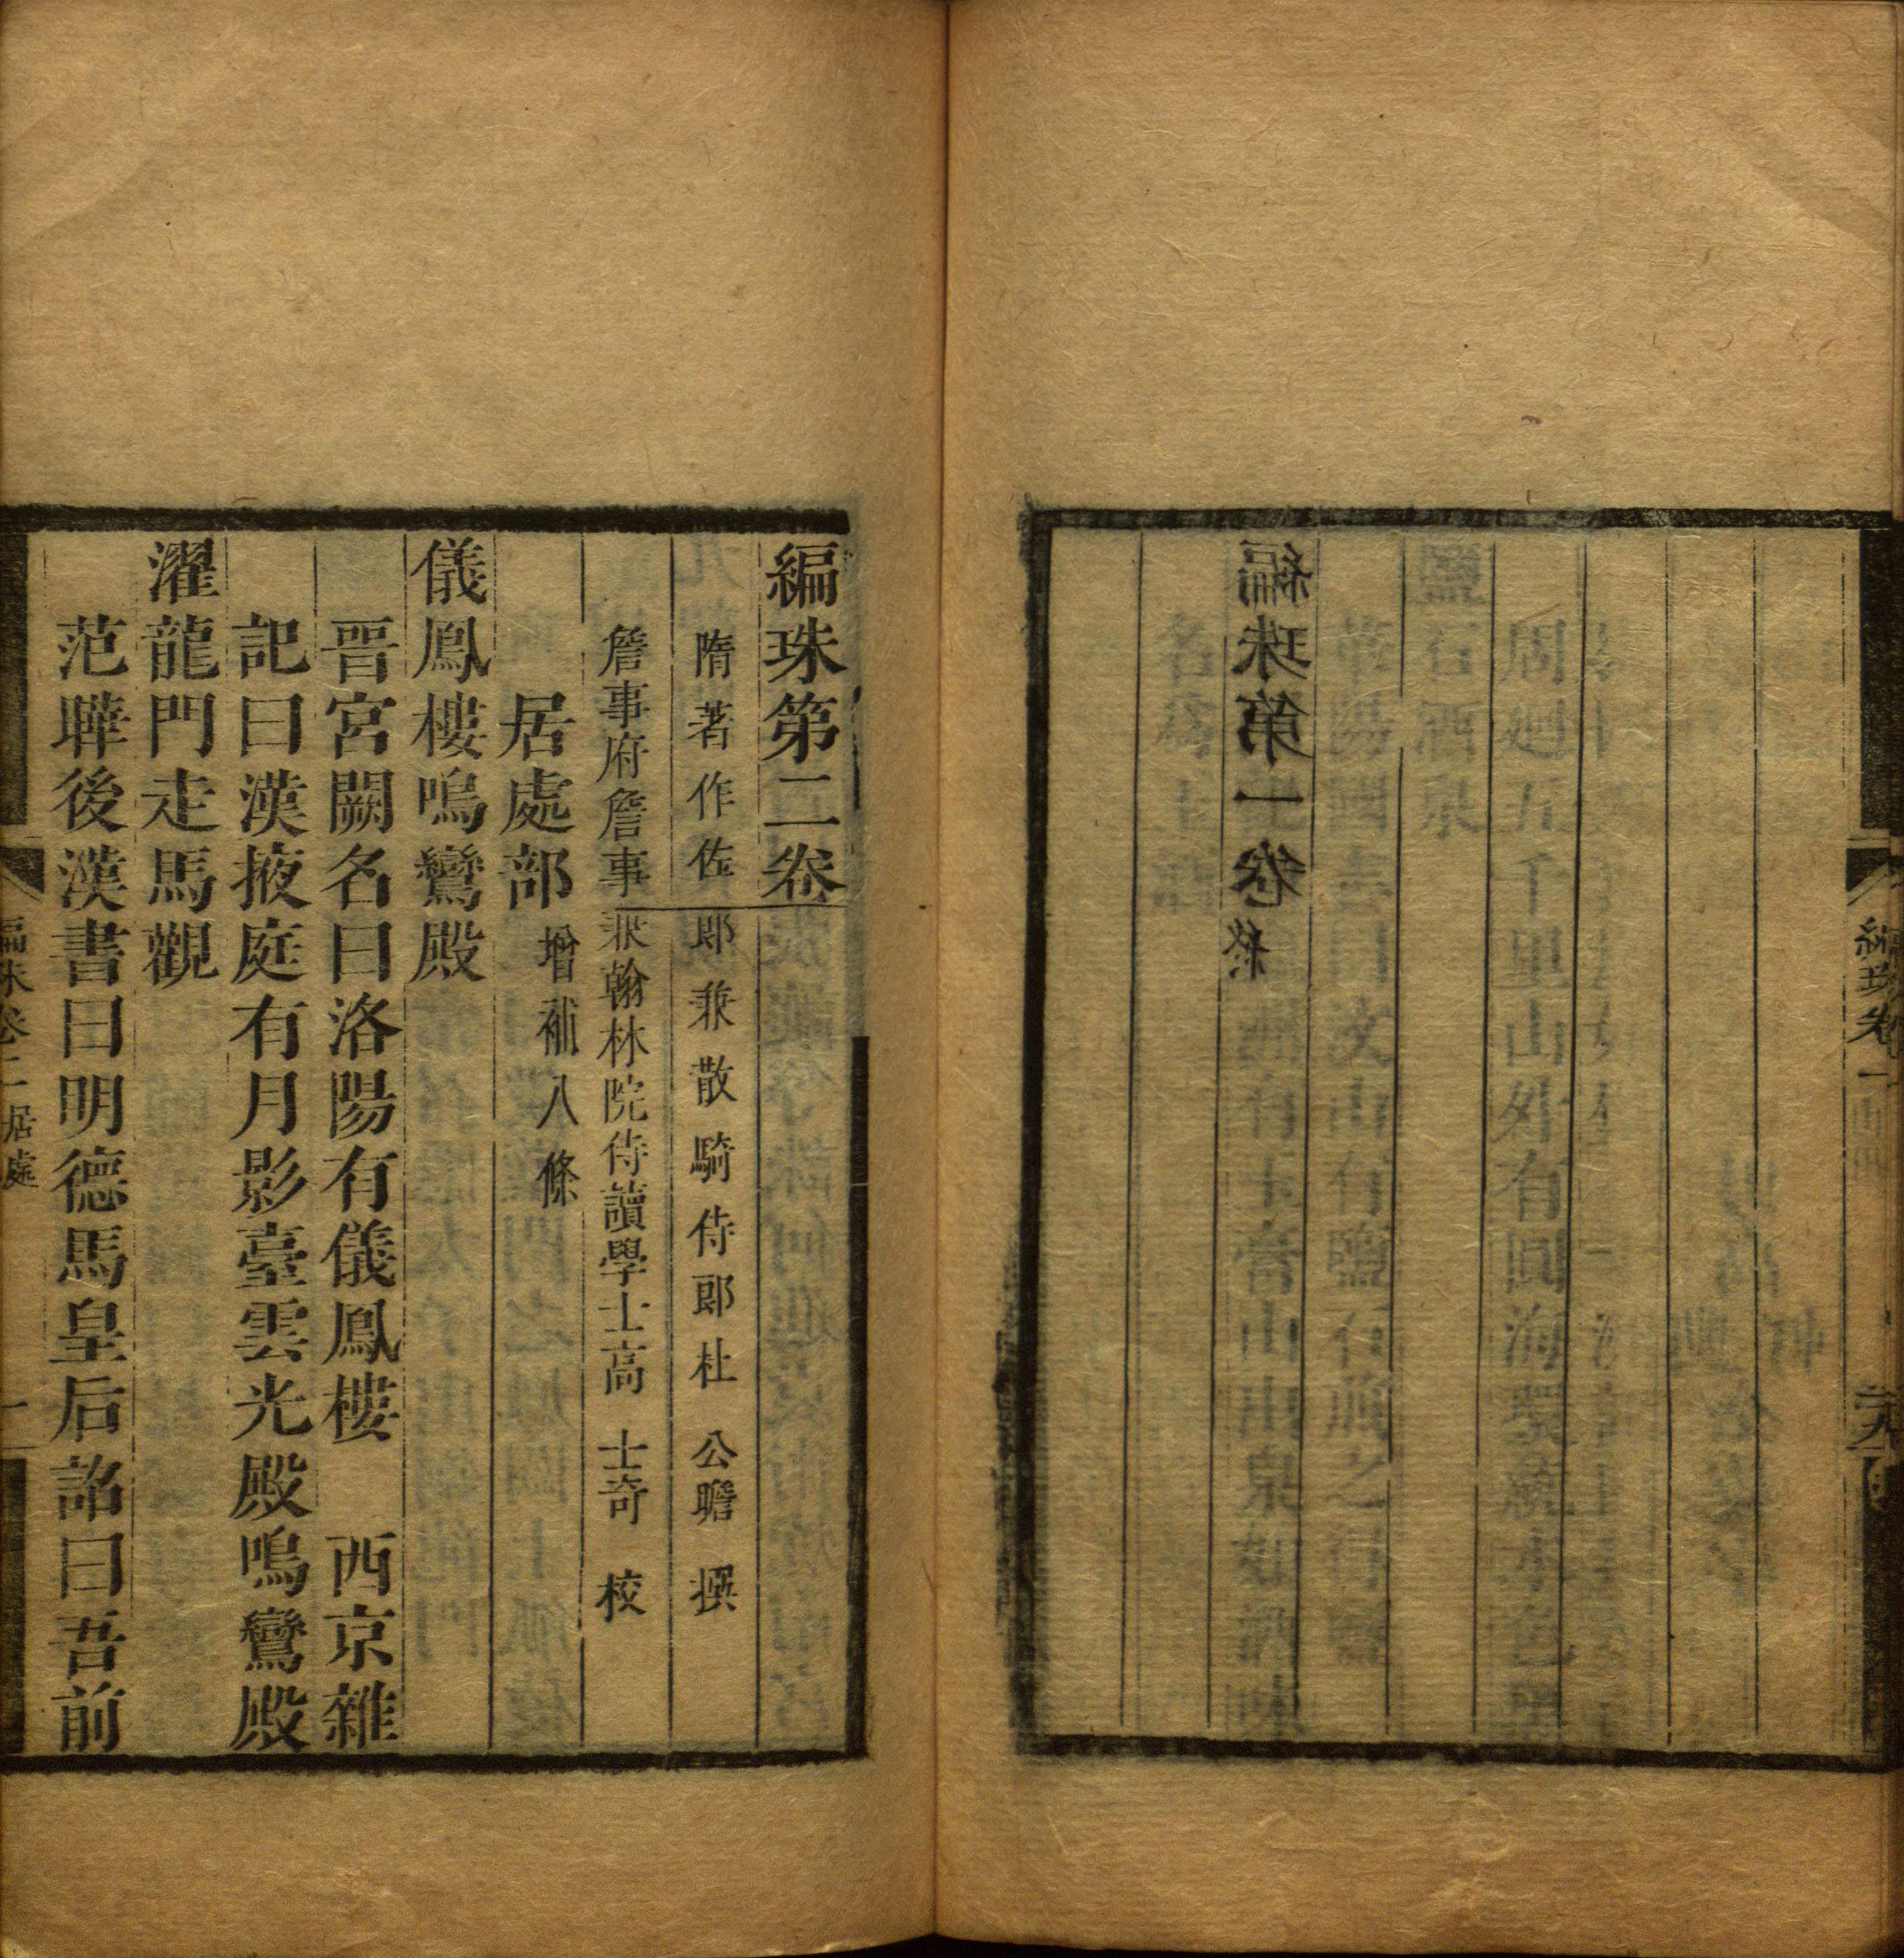 編珠第一卷終
編珠卷一
編珠第二卷
隋著作佐郎兼散騎侍郎杜公瞻撰
詹事府詹事兼翰林院侍讀學士高士奇校
居處部增補八條
儀鳳樓鳴鸞殿
晉宮闕名曰洛陽有儀鳳樓 西京雜
記曰漢掖庭有月影臺雲光殿鳴鸞殿
濯龍門走馬觀
范曄後漢書曰明德馬皇后詔曰吾前
編珠卷二 居處 一